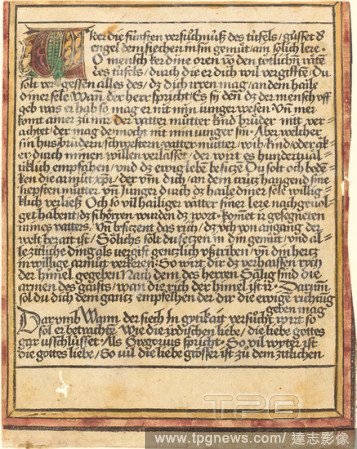 Wider die fünfften versüchnüß des tüfels / güsset d'
engel dem siechen in sin gemüt / ain solich lere .
O mensch ker dine oren von den tötlichen räte
des tüfels / durch die er dich wil vergifften / Du
solt vergessen alles des / dz dich irren mag / an dem haile
diner sele. Wan der herr spricht Es sy dan dz der mensch vff
geb waz er hab so mag er nit min iunger wesen Vnd wer
komt aner zu mir der vatter mütter kind brüder nitt ver
achtet / der mag dennocht nit min iunger sin Aber welcher
sin hus / brüder / schwestern / vatter / mütter / wib / kind / oder äk
er durch minen willen verlasset / der wirt es hundertual
tiklich empfahen / vnd dz ewig lebe besicze Du solt och bedē
ken die armüt der vm dich an dem crutz hangend sine
liepsten mütter vnd Junger durch dz haile diner sele willig
klich verließ Och so vil hailiger vätter siner lere nachgevol
get habent / dz si hören wurden dz wort . komet ir gesegneten
mines vatters Vnd besiczent das rich / dz vch von angang der
welt berait ist / Sölichs solt du seczen in din gemüt / vnd al
le zittliche ding als vergift gentzlich vstriben vnd din hertz
in willige armüt verkeren So wirt dir dz verhaissen rych
der himel gegeben Nach dem des herren Sälig sind die
armen des gaists / wan die rich der himel ist ir Darum
sol du dich dem gantz empfelhen der dir die ewige richtüg
geben mag
Darumb Wann der siech In gytikait versücht wirt so
sol er betrachte Wie die irdischen liebe / die liebe gottes
gar vsschlüsset Als Gregorius spricht So vil wyter ist
die gottes liebe / So vil die liebe grösser ist zu dem zittlichen
TPG
www.tpgnews.com / 達志影像